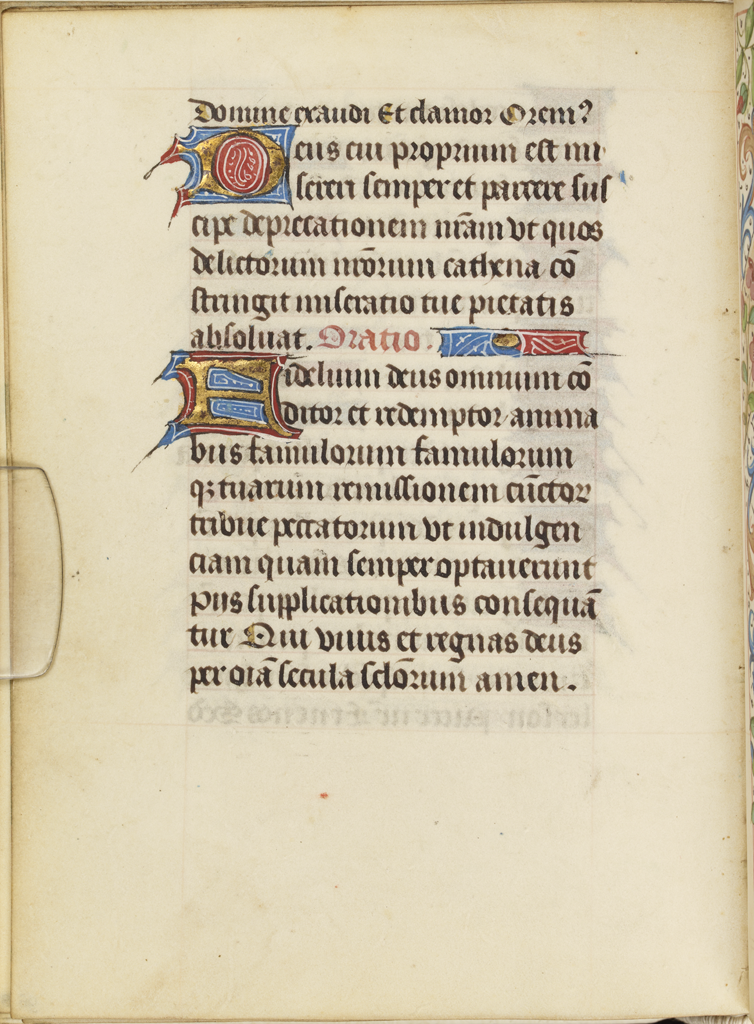 Domine exaudi Et clamor Orem?
Deus cui proprium est mi
sereri semper et parcere sus
cipe deprecationem nr̄am vt quos
delictorum nr̄orum cathena cō
stringit miseratio tue pietatis
absoluat. Oratio.
Fidelium deus omnium cō
ditor et redemptor anima
bus famulorum famulorum
qꝫ tuarum remissionem cūctoꝝ
tribue peccatorum vt indulgen
ciam quam semper optauerunt
piis supplicationibus consequā
tur Qui viuis et regnas deus
per oīa secula sclōrum amen.